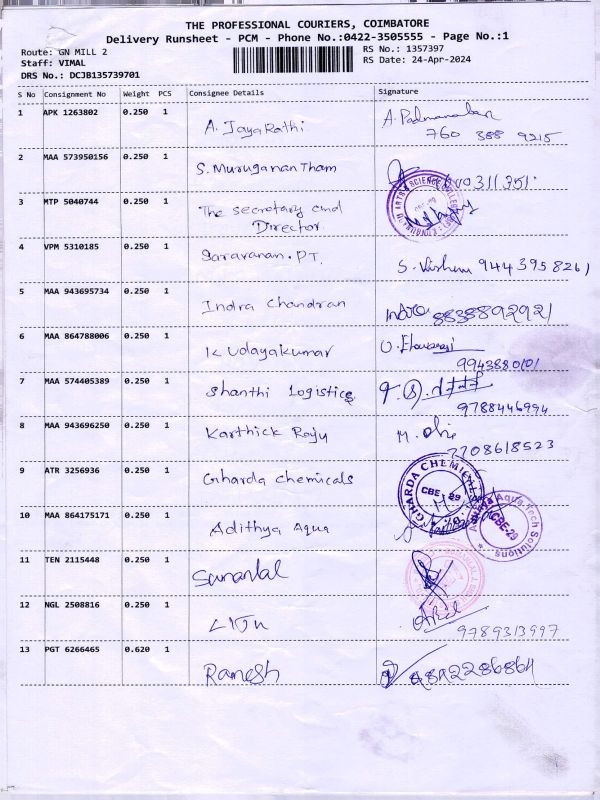 THE PROFESSIONAL COURIERS, COIMBATORE
Delivery Runsheet - PCM - Phone No.:0422-3505555 - Page No.:1
Route: GN MILL 2
RS No.: 1357397
Staff: VIMAL
RS Date: 24-Apr-2024
DRS No.: DCJB135739701
S No Consignment No Weight PCS Consignee Details Signature
1 APK 1263802 0.250 1 A. JayaRathi A. Padmanaban
760 388 9215
2 MAA 573950156 0.250 1 S. Muruganan Tham
3 MTP 5040744 0.250 1 The secretary and
Director
4 VPM 5310185 0.250 1 Saravanan. P.T. S. 9443958261
5 MAA 943695734 0.250 1 Indra Chandran 8838892921
6 MAA 864788006 0.250 1 K Udayakumar
9943880101
7 MAA 574405389 0.250 1 Shanthi Logistics
9788446994
8 MAA 943696250 0.250 1 Karthick Raju M.
7708618523
9 ATR 3256936 0.250 1 Gharda Chemicals GHARDA CHEMICALS
CBE - 29
10 MAA 864175171 0.250 1 Adithya Aqua Aqua Tech Solutions
CBE-29
11 TEN 2115448 0.250 1
12 NGL 2508816 0.250 1
9789313997
13 PGT 6266465 0.620 1 Ramesh